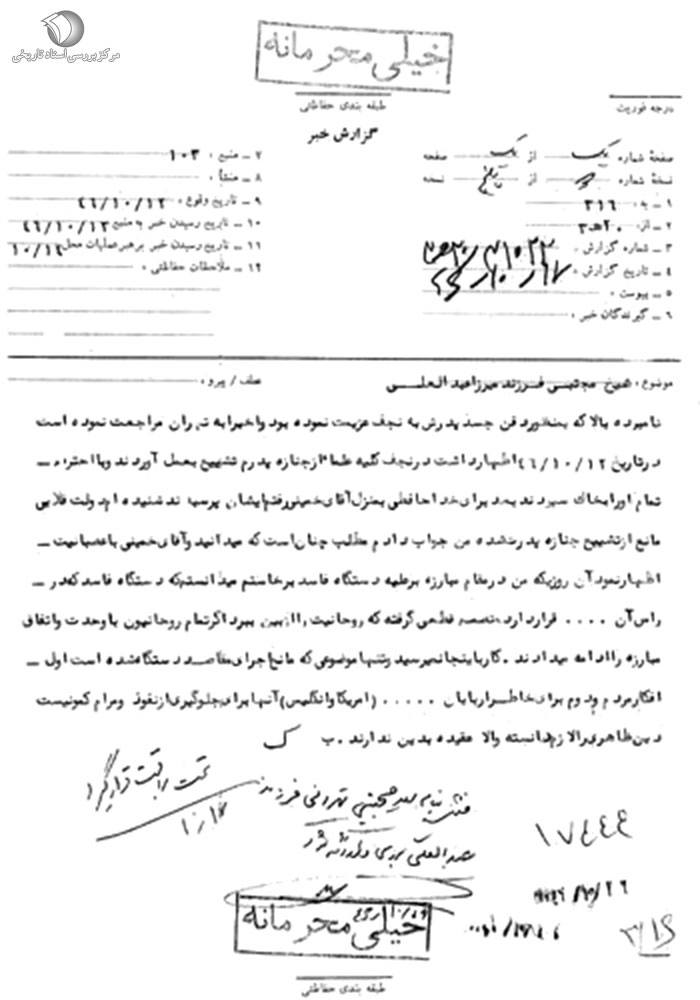 مرکز بررسی اسناد تاریخی
خیلی محرمانه
طبقه بندی حفاظتی
درجه فوریت
گزارش خبر
صفحهٔ شماره یک از یک صفحه
نسخهٔ شماره از پنج نسخه
۱ ـ به : ۳۱۶
۲ ـ از : ۲۰ ه‍ ۳
۳ ـ شماره گزارش :
۴ ـ تاریخ گزارش :
۵ ـ پیوست :
۶ ـ گیرندگان خبر :
۷ ـ منبع : ۱۰۳
۸ ـ منشأ :
۹ ـ تاریخ وقوع : ۴۶/۱۰/۱۲
۱۰ ـ تاریخ رسیدن خبر به منبع ۴۶/۱۰/۱۲
۱۱ ـ تاریخ رسیدن خبر برهبر عملیات محل ۱۰/۱۴
۱۲ ـ ملاحظات حفاظتی :
موضوع : شیخ مجتبی فرزند میرزاعبدالعلی
عطف / پیرو :
نامبرده بالا که بمنظور دفن جسد پدرش به نجف عزیمت نموده بود و اخیرا به تهران مراجعت نموده است
در تاریخ ۴۶/۱۰/۱۲ اظهار داشت در نجف کلیه علما از جنازه پدرم تشییع بعمل آوردند و با احترام ـ
تمام او را بخاک سپردند بعد برای خداحافظی بمنزل آقای خمینی رفتم ایشان پرسیدند شنیده ام دولت فلابی
مانع از تشییع جنازه پدرت شده من جواب دادم مطلب چنان است که میدانید و آقای خمینی با عصبانیت ـ
اظهار نمود آن روزیکه من در مقام مبارزه برعلیه دستگاه فاسد برخاستم میدانستم که دستگاه فاسد که در ـ
راس آن .... قرار دارد تصمیم قطعی گرفته که روحانیت را از بین ببرد اگر تمام روحانیون با وحدت و اتفاق
مبارزه را ادامه میدادند . کار باینجا نمیرسید و تنها موضوعی که مانع اجرای مقاصد دستگاه شده است اول ـ
افکار مردم و دوم برای خاطر اربابان ..... (امریکا و انگلیس) آنها برای جلوگیری از نفوذ و مرام کمونیست
دین ظاهری را لازم دانسته والا عقیده بدین ندارند . ب
ک
تحت مراقبت قرار گیرد
۱۰/۱۷
مجتبی تهرانی فرزند
عبدالعلی
۱۷۴۴۴
خیلی محرمانه
۳۱۶
طبقه بندی حفاظتی